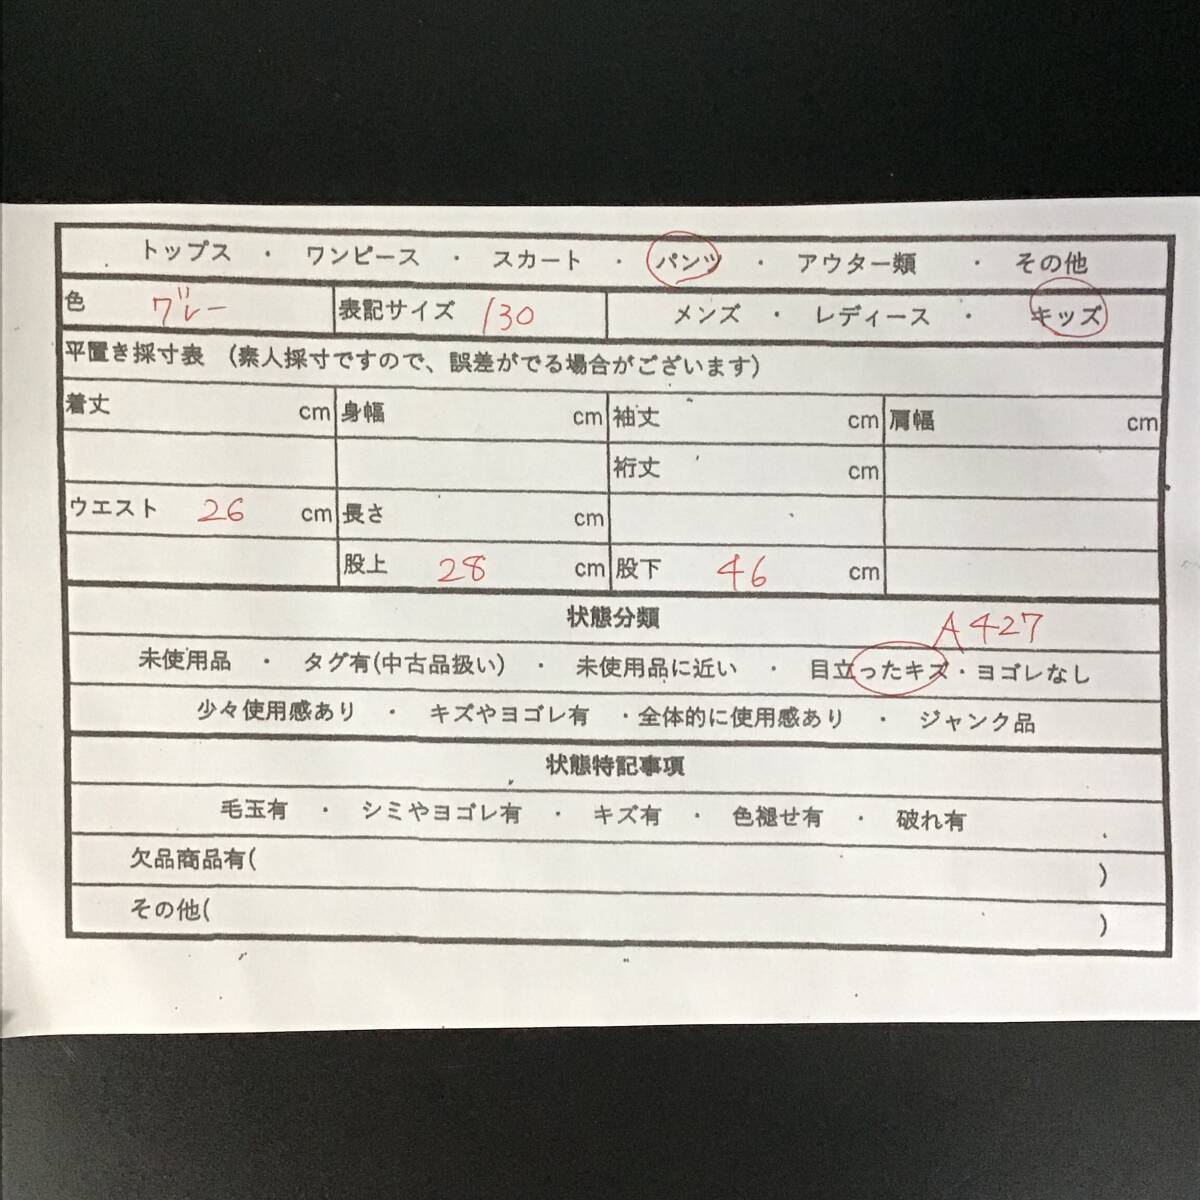 トップス ・ ワンピース ・ スカート ・ パンツ ・ アウター類 ・ その他
色 グレー 表記サイズ 130 メンズ ・ レディース ・ キッズ
平置き採寸表 (素人採寸ですので、誤差がでる場合がございます)
着丈 cm 身幅 cm 袖丈 cm 肩幅 cm
裄丈 cm
ウエスト 26 cm 長さ cm
股上 28 cm 股下 46 cm
状態分類 A427
未使用品 ・ タグ有(中古品扱い) ・ 未使用品に近い ・ 目立ったキズ・ヨゴレなし
少々使用感あり ・ キズやヨゴレ有 ・全体的に使用感あり ・ ジャンク品
状態特記事項
毛玉有 ・ シミやヨゴレ有 ・ キズ有 ・ 色褪せ有 ・ 破れ有
欠品商品有( )
その他( )